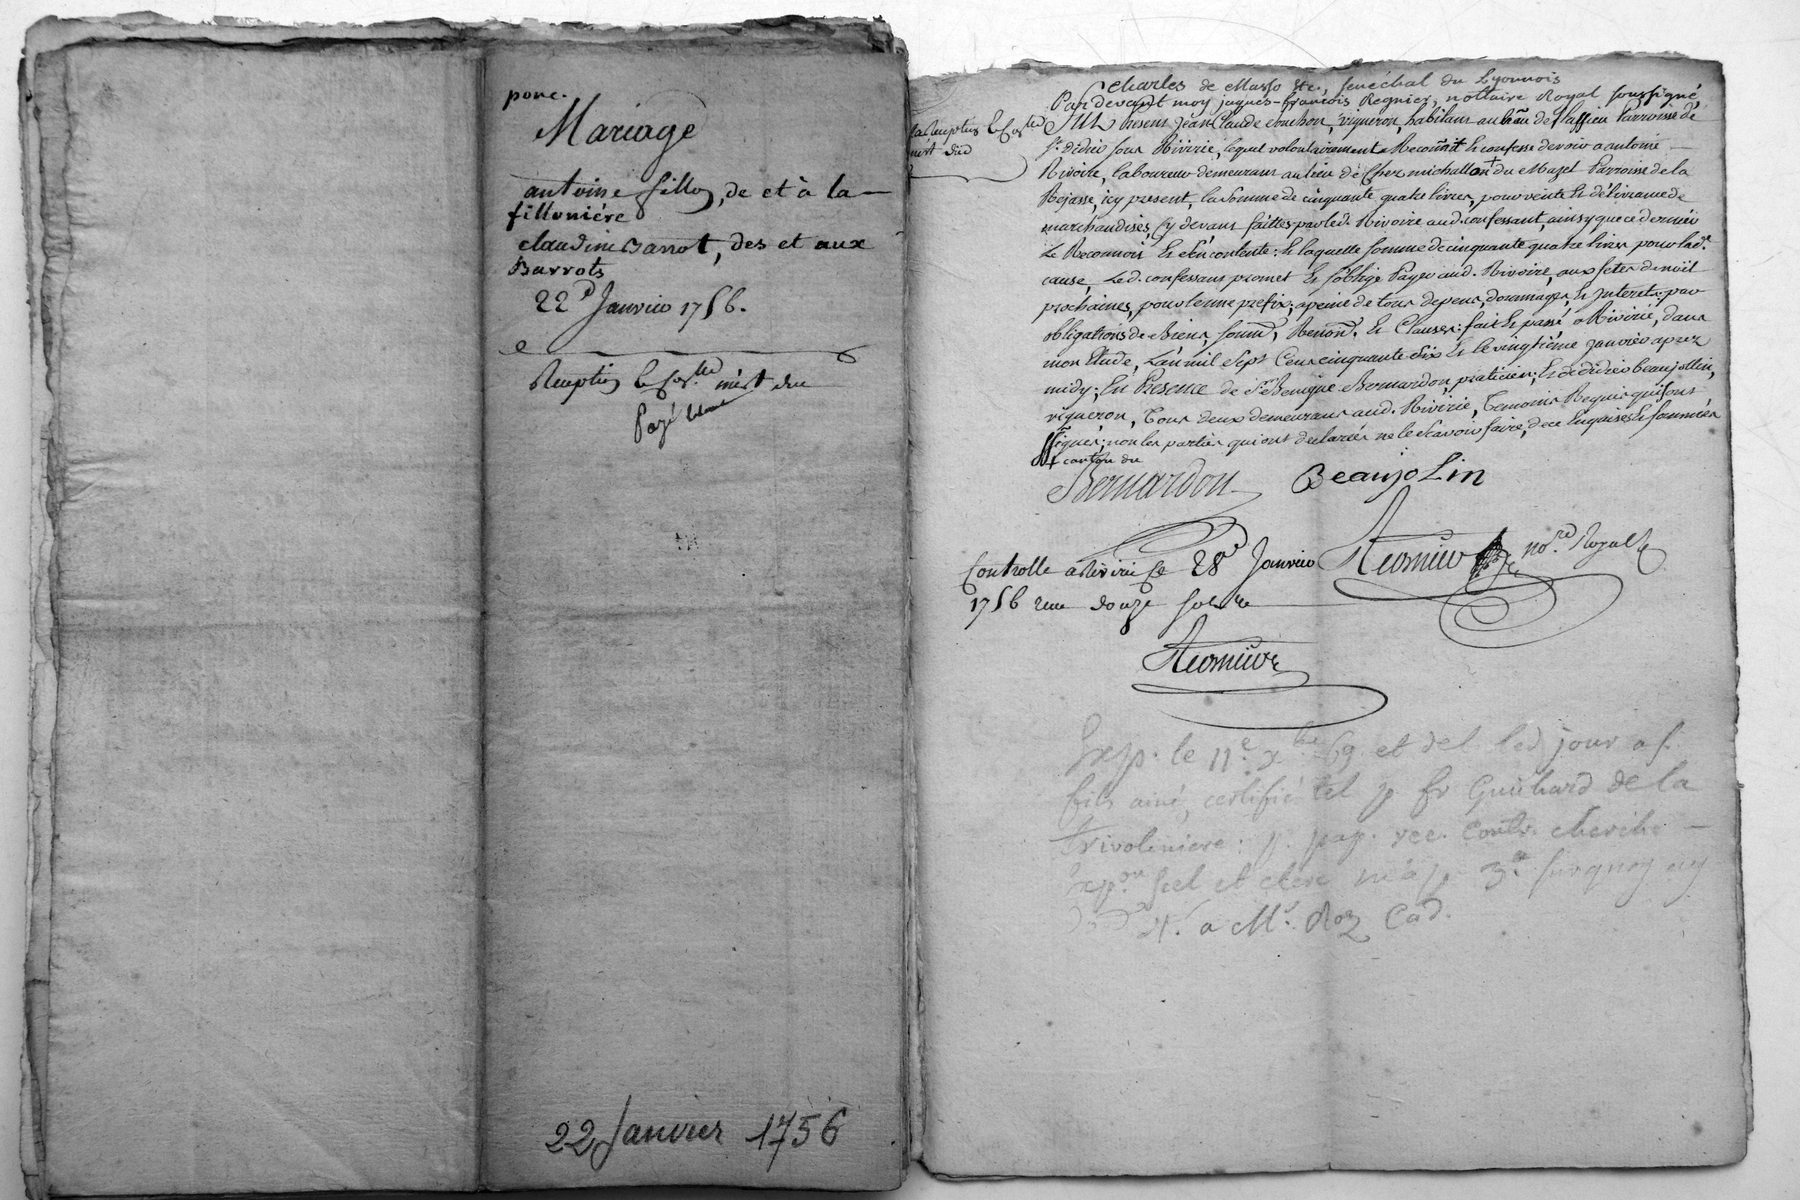 ponc.
Mariage
antoine fillon, de et à la
filloniére
claudine Barrot, des et aux
Barrots
22e Janvier 1756.
Reception m'est due
Payé
22 Janvier 1756
Charles de Masso &c, senéchal du Lyonnois
Pardevant moy jaques-francois Regnier, nottaire Royal soussigné,
Fut present jean Claude Souchon, vigneron, habitant au lieu de Flassieu Parroisse de
St. didier sous Riviriè, lequel volontairement à Reconnut & confesse devoir a antoine
Rivoire, laboureur demeurant au lieu de Chez michallon du Mazel Parroisse de la
Rejasse, icy present, la somme de cinquante quatre livres, pour vente & délivrance de
marchandises, Cy devant faittes par led. Rivoire aud. confessant, ainsy que ce dernier
Le Reconnoit & s'en contente: & laquelle somme de cinquante quatre livres pour lad.
cause, Led. confessant promet & s'oblige Payer aud. Rivoire, aux fetes de noël
prochaines, pour terme prefix; a peine de tous depens, dommages, & Interets: par
obligations de Biens, soumn. Renonn. & Clauses: fait & passé a Riviriè, dans
mon Etude, L'an mil Sept Cent cinquante Six & le vingtième janvier aprez
midy; En Presence de Sr. Benigne Bernardon, praticien; & de didier beaujollin,
vigneron, Tous deux demeurant aud. Riviriè, Temoins Requis qui ont
signés; non les parties qui ont declarées ne le scavoir faire, de ce Enquises & sommées
Bernardon Beaujolin
Controllé a Riviriè Ce 28e Janvier Regnier nore. Royal
1756 reçu douze sols
Regnier
Exp. le 11e xbre 69 et del. led. jour a s.
fils ainé, certifié tel p fr Guichard de la
Trivoliniere: p. pap. rec. Contr.
Expon scel et a p. 3
a Mr. Roz Cad.